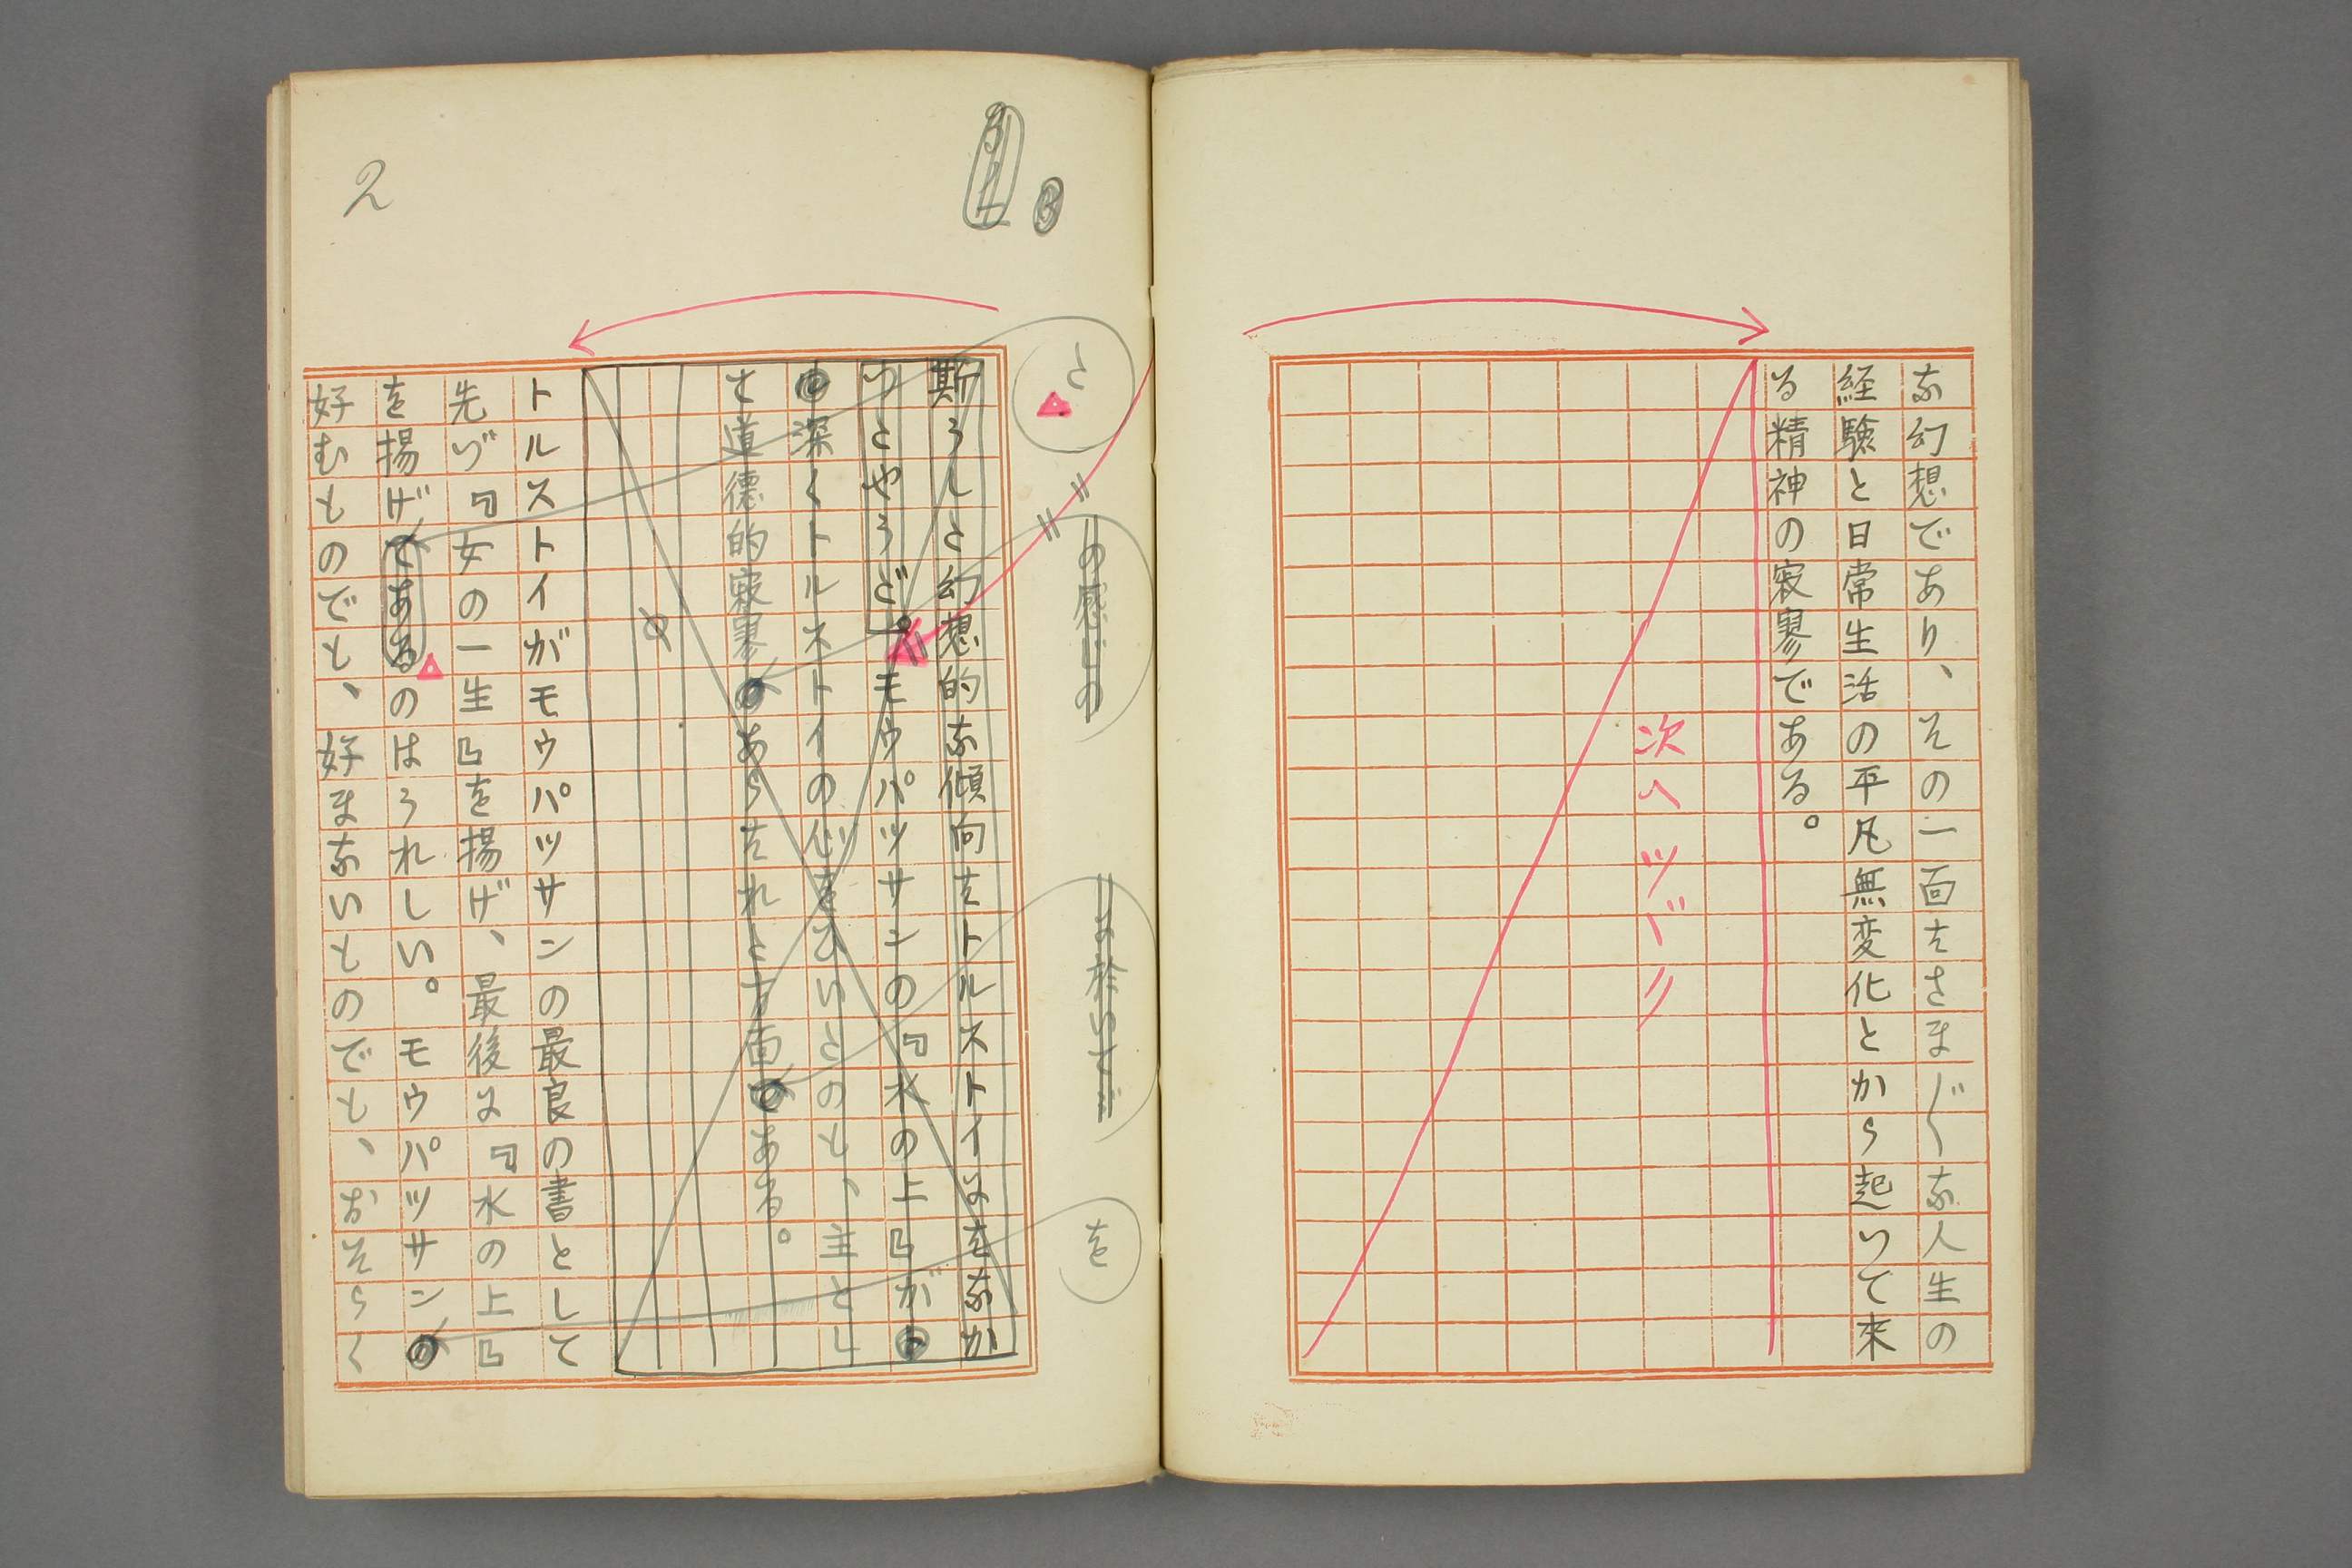 な幻想であり、その一面はさま〴〵な人生の
経験と日常生活の平凡無変化とから起つて来
る精神の寂寥である。
次ヘツヾク
2
た
の感じの
に於いて
を
斯うした幻想的な傾向はトルストイにはなか
つたやうだ。モウパツサンの『水の上』が
深くトルストイの心をひいたのも、主とし
て道徳的寂寥あらはれた方面ある。
トルストイがモウパツサンの最良の書として
先づ『女の一生』を揚げ、最後に『水の上』
を揚げてあるのはうれしい。モウパツサン
好むものでも、好まないものでも、おそらく